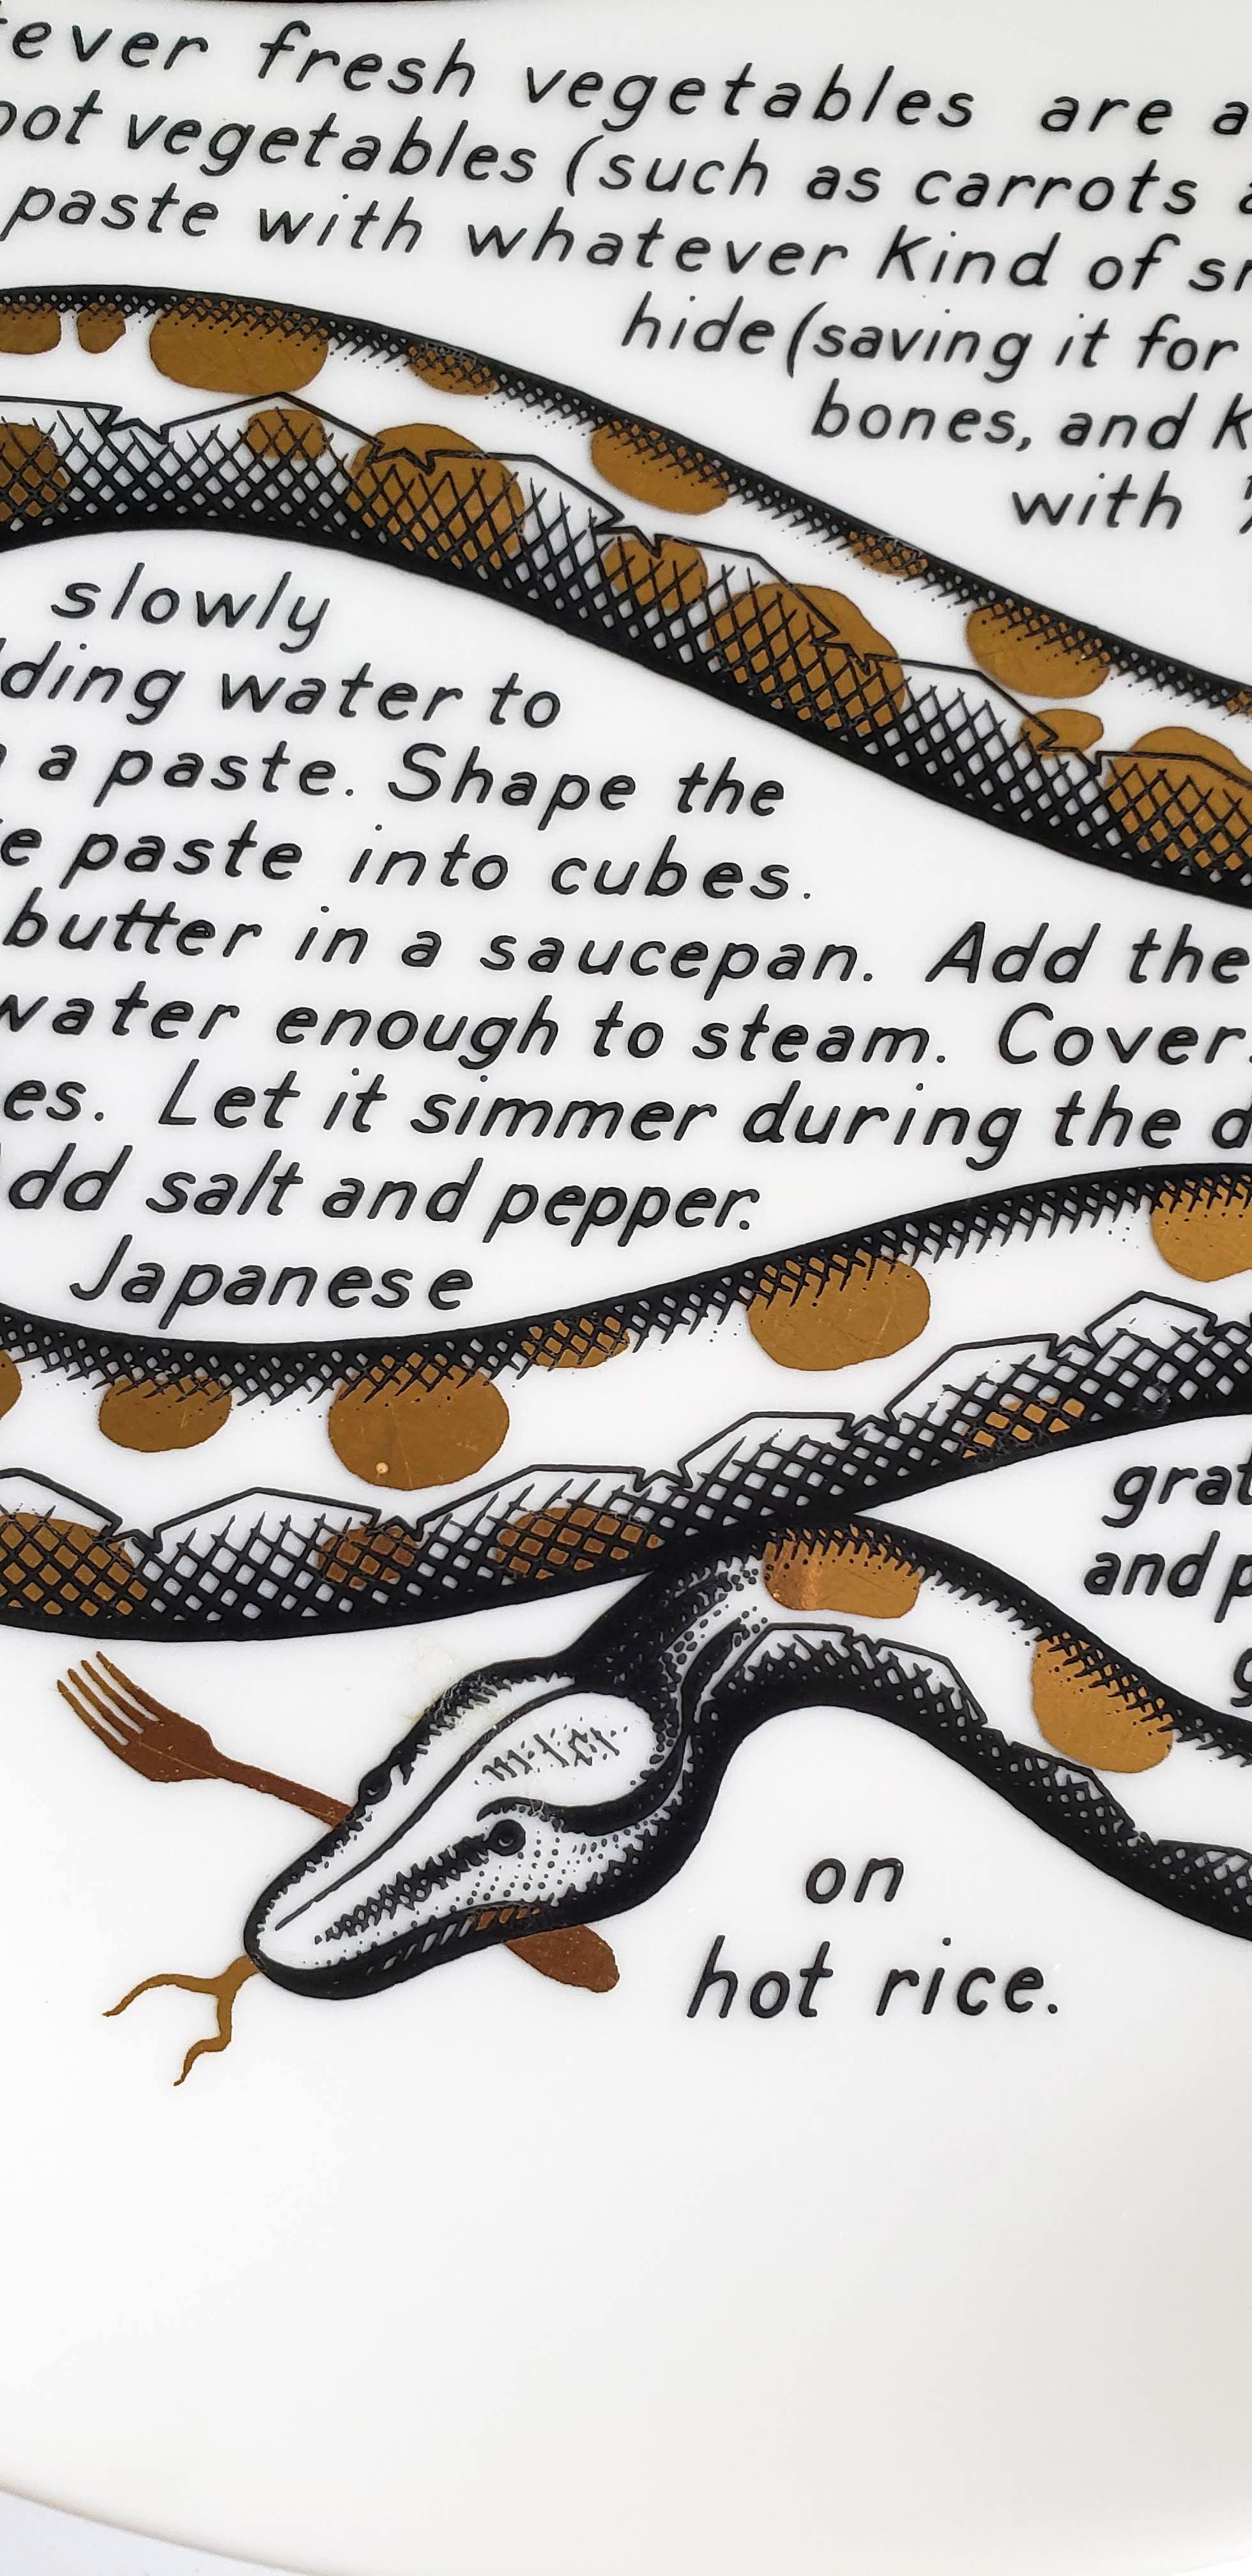 fresh vegetables are
vegetables (such as carrots
paste with whatever Kind of
hide (saving it for
bones, and
with
slowly
water to
a paste. Shape the
paste into cubes.
butter in a saucepan. Add the
water enough to steam. Cover
Let it simmer during the
salt and pepper.
Japanese
and
on
hot rice.